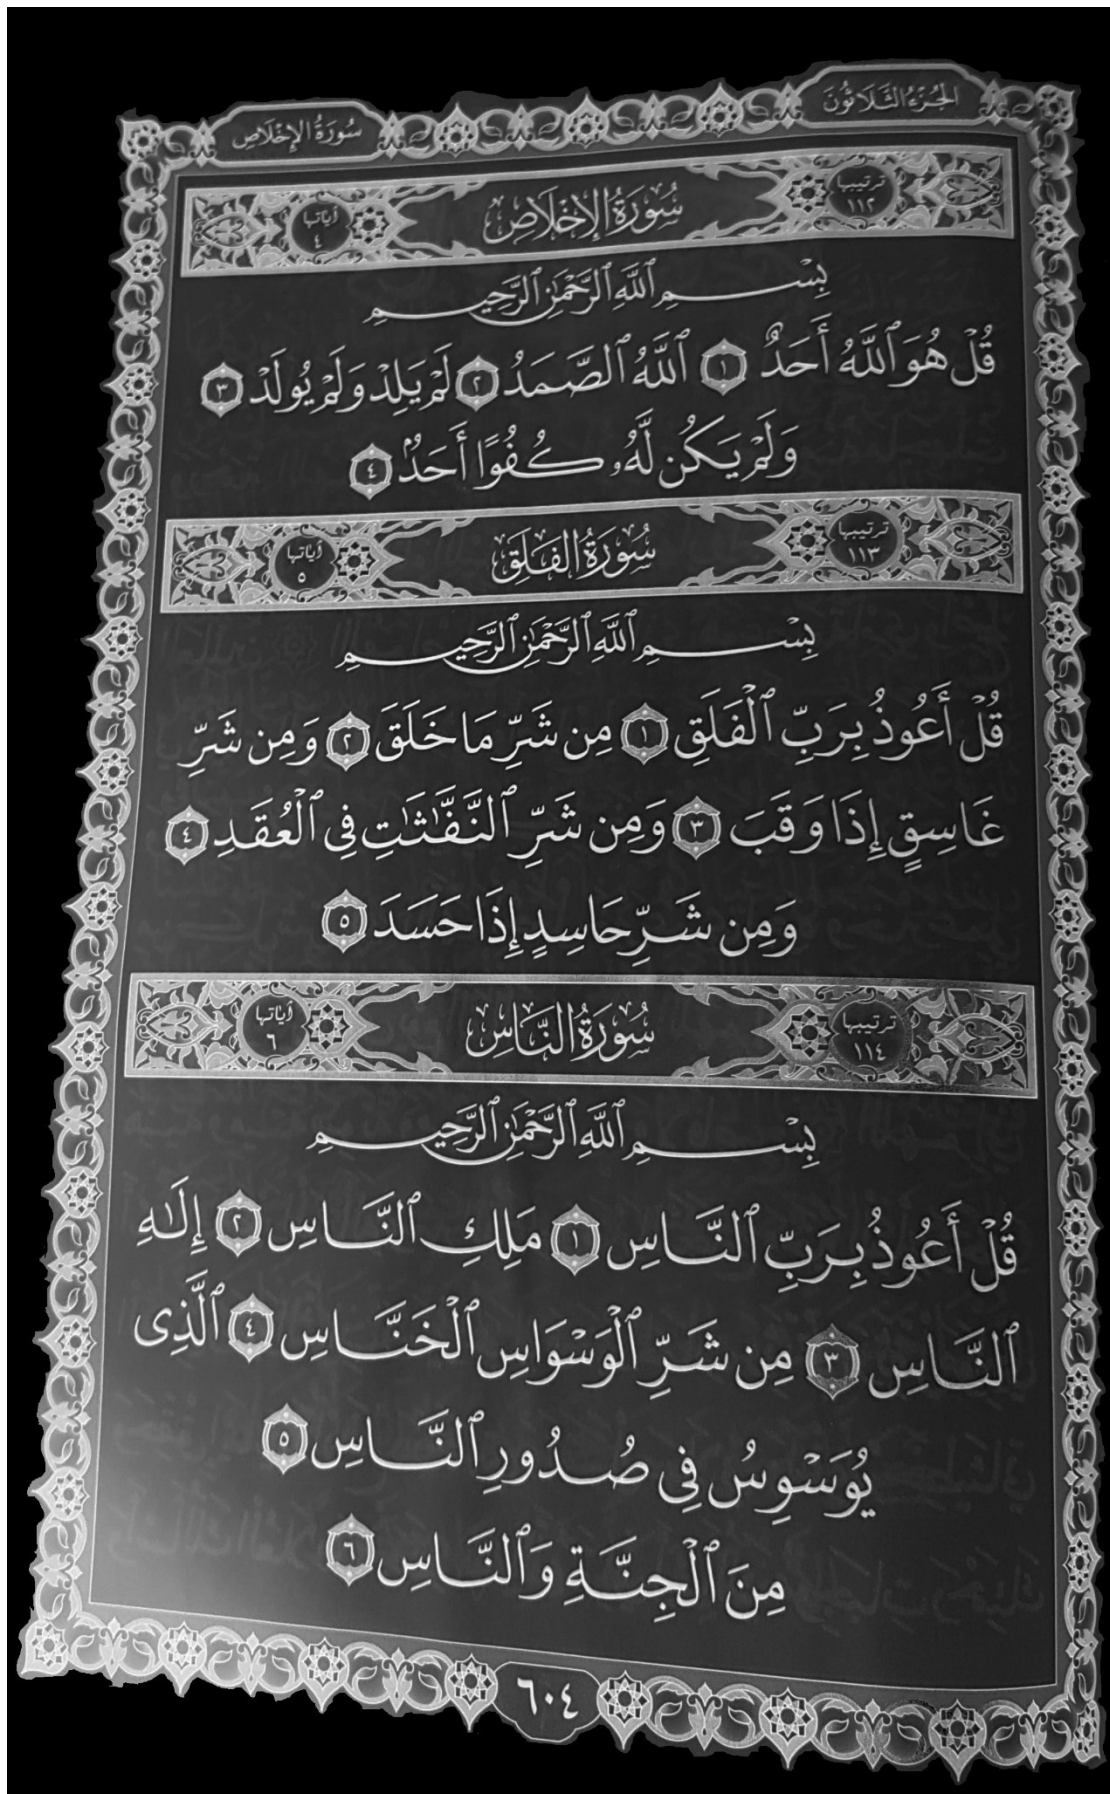 الجُزْءُ الثَّلَاثُونَ
سُورَةُ الإِخْلَاصِ
ترتيبها
١١٢
سُورَةُ الإِخْلَاصِ
آياتها
٤
بِسْمِ ٱللَّهِ ٱلرَّحْمَٰنِ ٱلرَّحِيمِ
قُلْ هُوَ ٱللَّهُ أَحَدٌ ١ ٱللَّهُ ٱلصَّمَدُ ٢ لَمْ يَلِدْ وَلَمْ يُولَدْ ٣
وَلَمْ يَكُن لَّهُۥ كُفُوًا أَحَدٌۢ ٤
ترتيبها
١١٣
سُورَةُ الفَلَقِ
آياتها
٥
بِسْمِ ٱللَّهِ ٱلرَّحْمَٰنِ ٱلرَّحِيمِ
قُلْ أَعُوذُ بِرَبِّ ٱلْفَلَقِ ١ مِن شَرِّ مَا خَلَقَ ٢ وَمِن شَرِّ
غَاسِقٍ إِذَا وَقَبَ ٣ وَمِن شَرِّ ٱلنَّفَّٰثَٰتِ فِى ٱلْعُقَدِ ٤
وَمِن شَرِّ حَاسِدٍ إِذَا حَسَدَ ٥
ترتيبها
١١٤
سُورَةُ النَّاسِ
آياتها
٦
بِسْمِ ٱللَّهِ ٱلرَّحْمَٰنِ ٱلرَّحِيمِ
قُلْ أَعُوذُ بِرَبِّ ٱلنَّاسِ ١ مَلِكِ ٱلنَّاسِ ٢ إِلَٰهِ
ٱلنَّاسِ ٣ مِن شَرِّ ٱلْوَسْوَاسِ ٱلْخَنَّاسِ ٤ ٱلَّذِى
يُوَسْوِسُ فِى صُدُورِ ٱلنَّاسِ ٥
مِنَ ٱلْجِنَّةِ وَٱلنَّاسِ ٦
٦٠٤